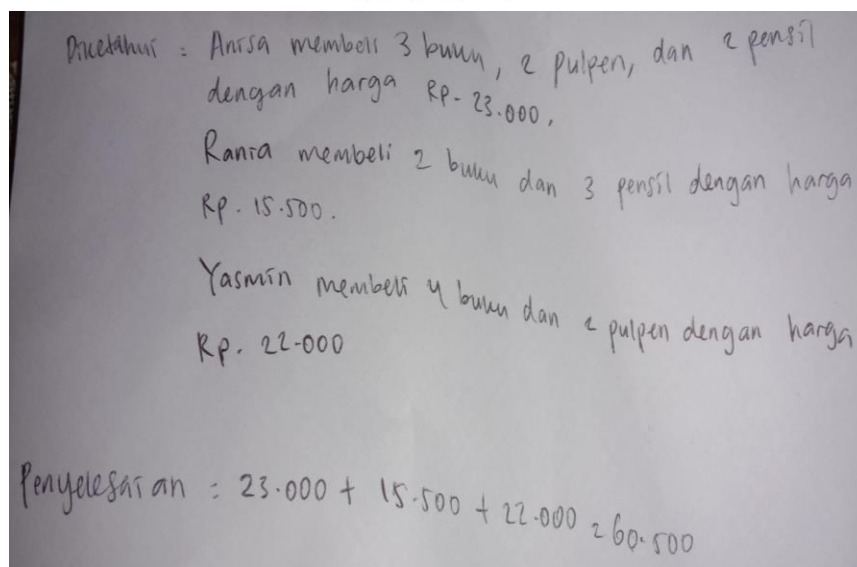 Diketahui : Anisa membeli 3 buku, 2 pulpen, dan 2 pensil
dengan harga Rp. 23.000,
Rania membeli 2 buku dan 3 pensil dengan harga
Rp. 15.500.
Yasmin membeli 4 buku dan 2 pulpen dengan harga
Rp. 22.000
Penyelesaian : 23.000 + 15.500 + 22.000 = 60.500